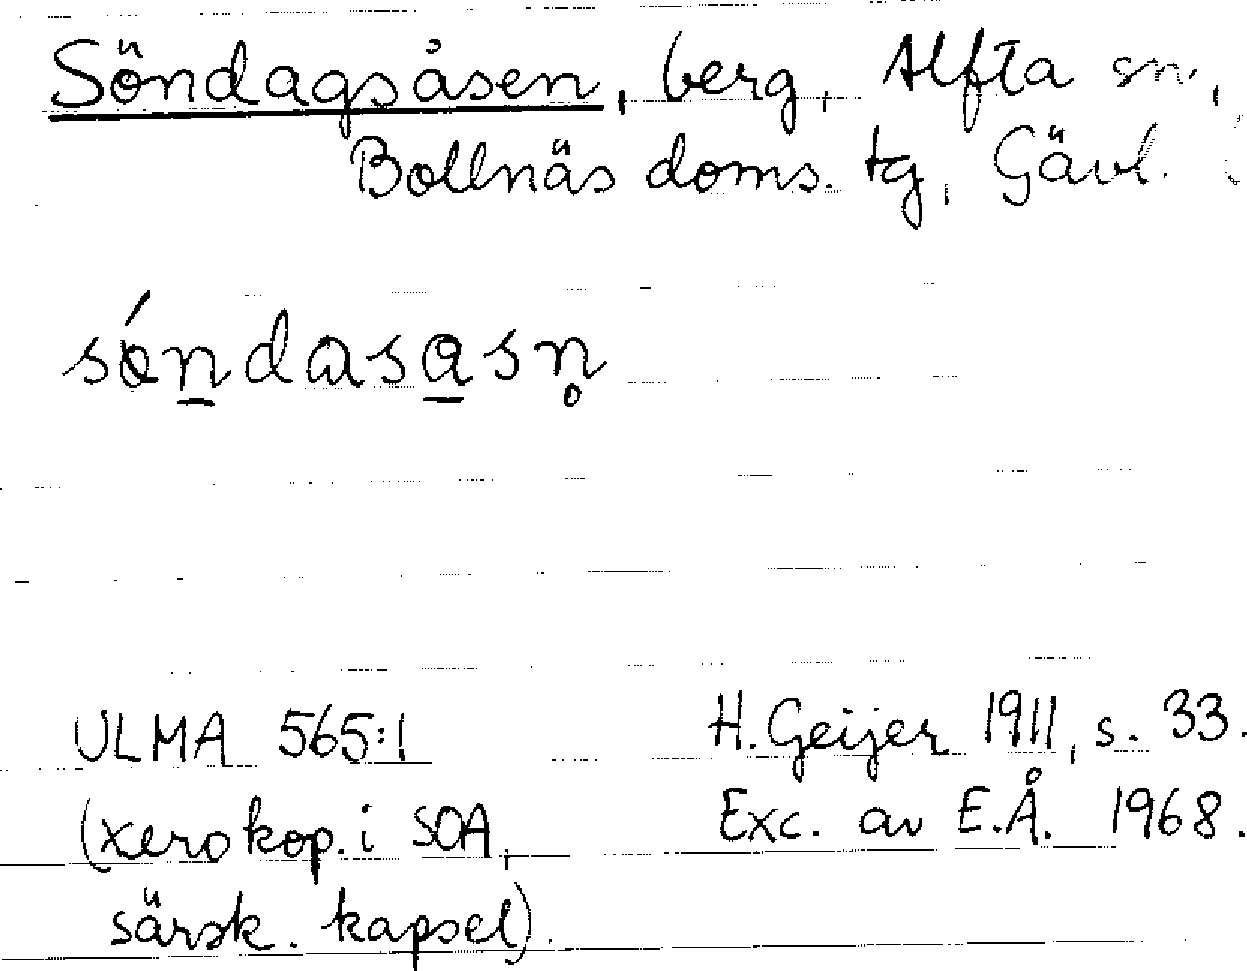 Söndagsåsen, berg, Alfta sn,
Bollnäs doms. tg, Gävl.
sóndasasn̥
ULMA 565:1
(xerokop. i SOA,
särsk. kapsel).
H. Geijer 1911, s. 33.
Exc. av E.Å. 1968.